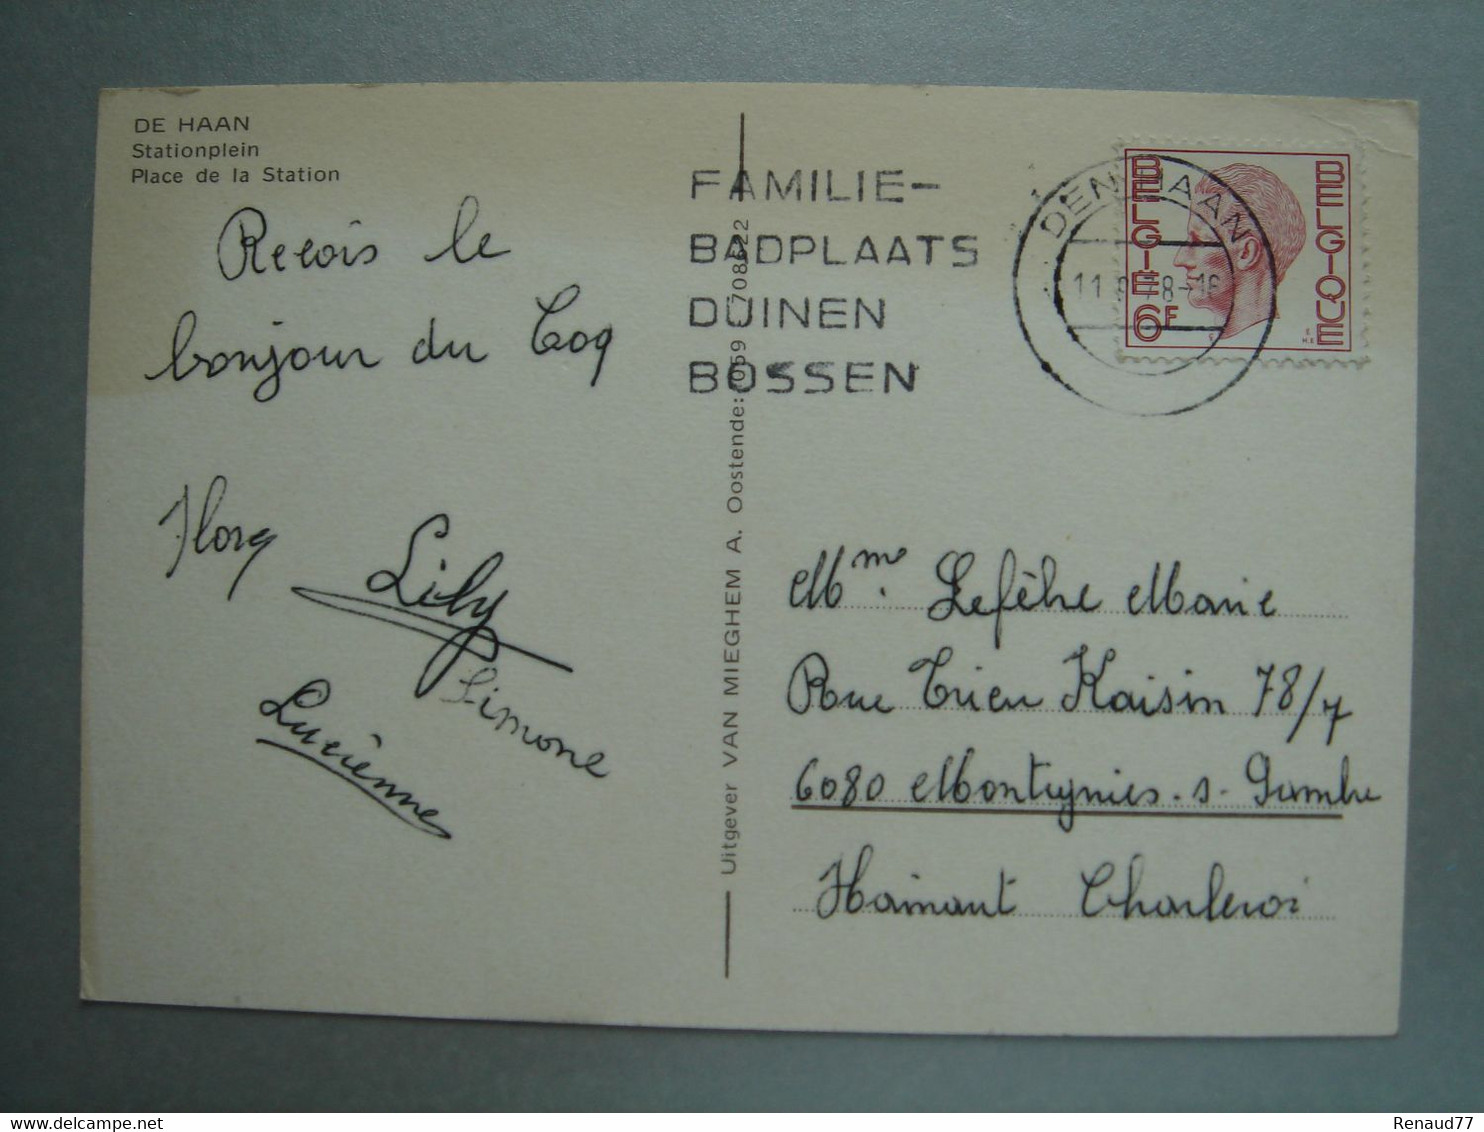 DE HAAN
Stationplein
Place de la Station
Recois le
bonjour du Coq
Flora
Lily
Simone
Lucienne
Uitgever VAN MIEGHEM A. Oostende: 059
FAMILIE-
BADPLAATS
DUINEN
BOSSEN
DEN HAAN
BELGIE
6F
BELGIQUE
Mme. Lefèbre Marie
Rue Trieu Kaisin 78/7
6080 Montignies-s-Sambre
Hainaut Charleroi
www.delcampe.net
Renaud77